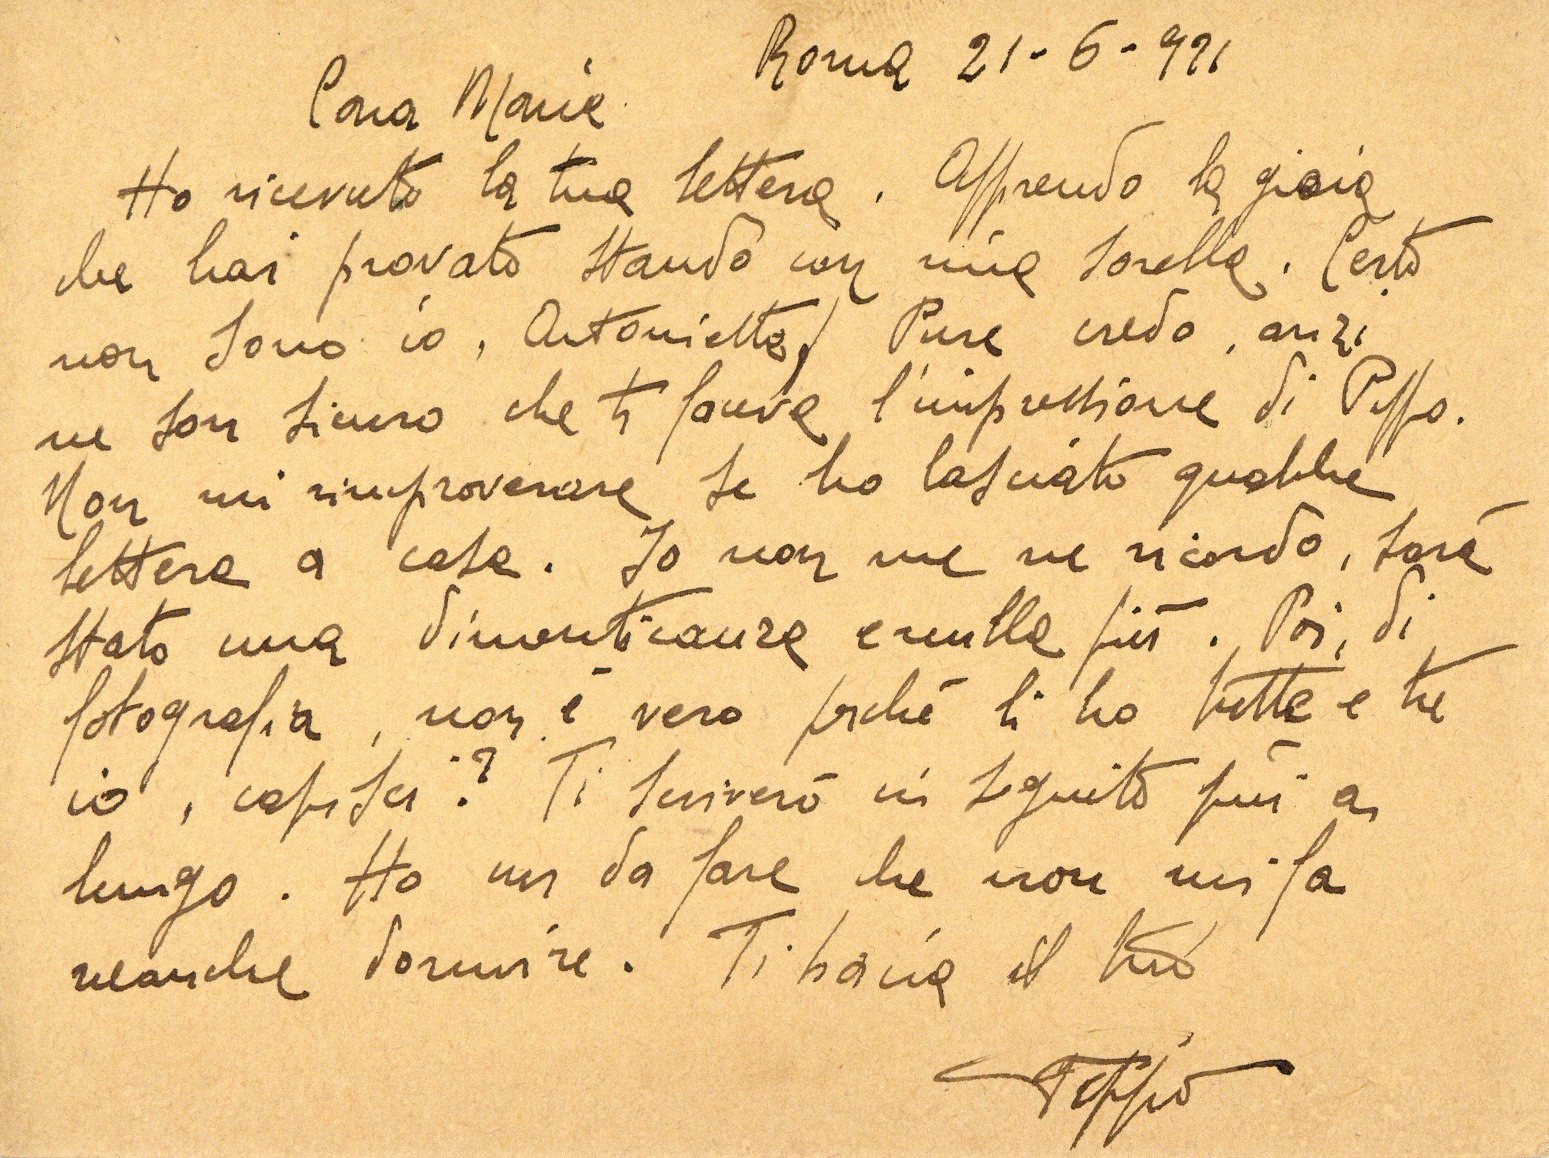 Roma 21-6-921
Cara Maria
Ho ricevuto la tua lettera. Apprendo la gioia
che hai provato stando con mia sorella. Certo
non sono io, Antonietta! Pure credo, anzi
ne son sicuro che ti faceva l'impressione di Peppo.
Non mi rimproverare se ho lasciato qualche
lettera a casa. Io non me ne ricordo, sarà
stato una dimenticanza e nulla più. Poi, di
fotografia, non è vero perché li ho tutte e tre
io, capisci? Ti scriverò in seguito più a
lungo. Ho un da fare che non mi fa
neanche dormire. Ti bacia il tuo
Peppo